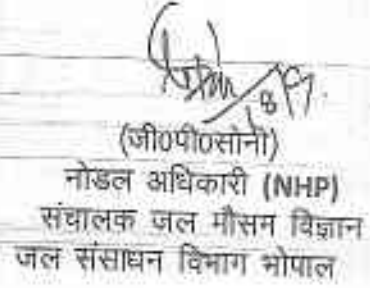 (जी0पी0सोनी)
नोडल अधिकारी (NHP)
संचालक जल मौसम विज्ञान
जल संसाधन विभाग भोपाल